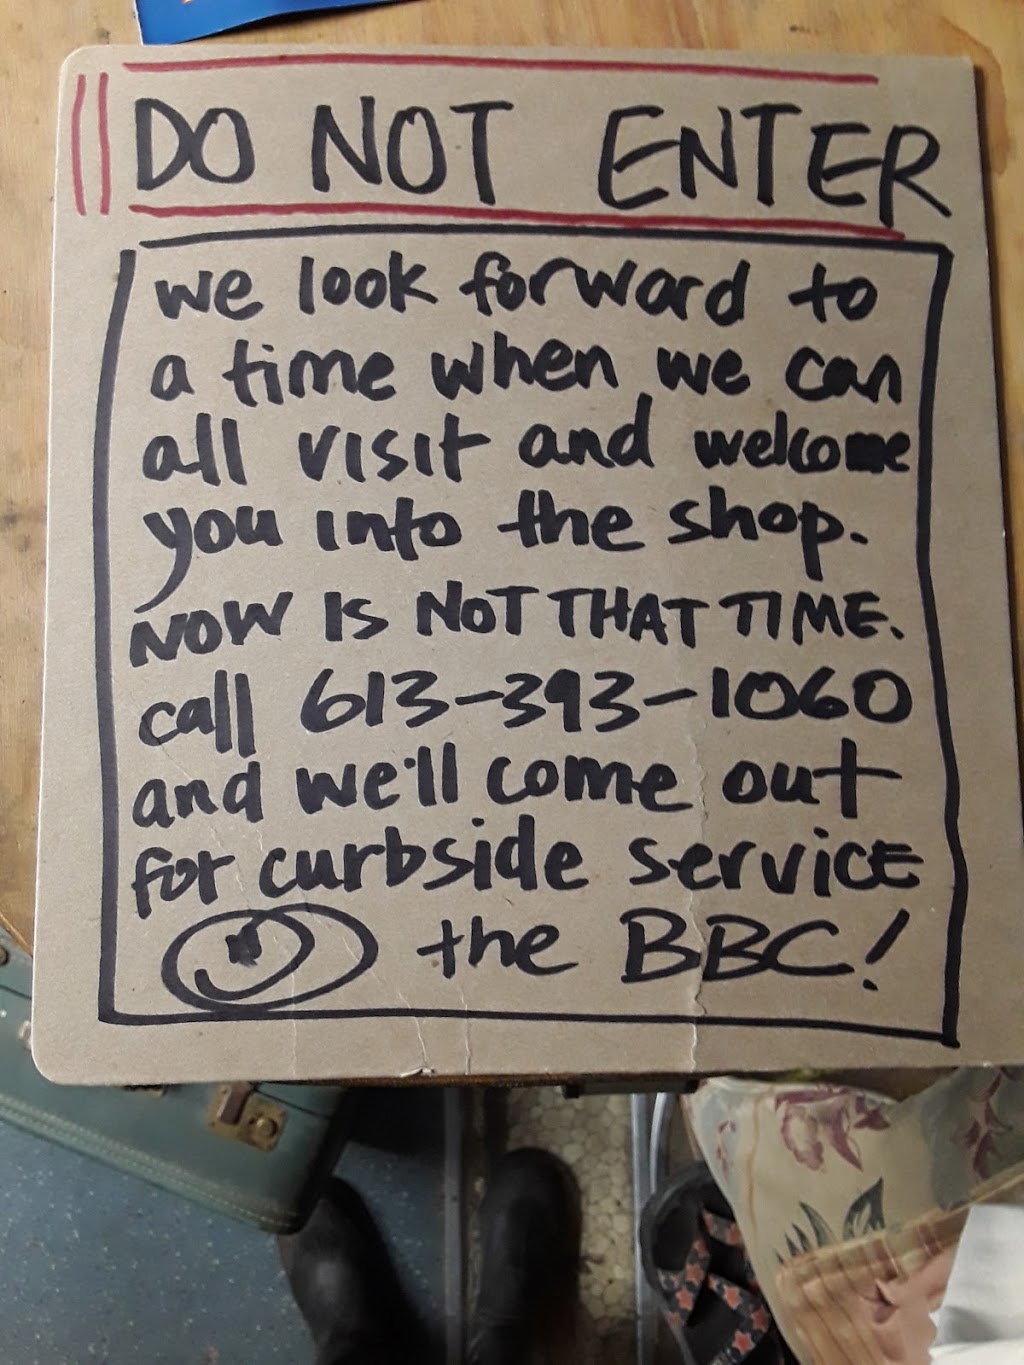 DO NOT ENTER
we look forward to
a time when we can
all visit and welcome
you into the shop.
NOW IS NOT THAT TIME.
call 613-393-1060
and we'll come out
for curbside service
the BBC!